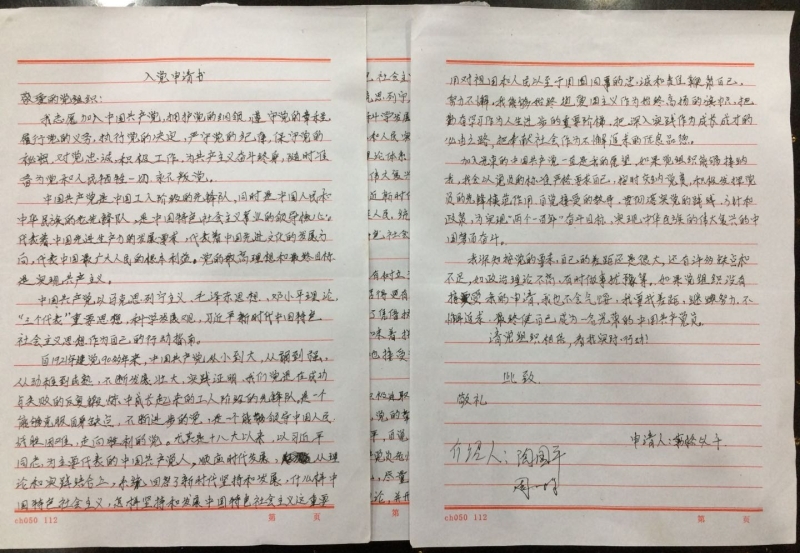 入党申请书
敬爱的党组织:
我志愿加入中国共产党,拥护党的纲领,遵守党的章程,
履行党的义务,执行党的决定,严守党的纪律,保守党的
秘密,对党忠诚,积极工作,为共产主义奋斗终身,随时准
备为党和人民牺牲一切,永不叛党。
中国共产党是中国工人阶级的先锋队,同时是中国人民和
中华民族的先锋队,是中国特色社会主义事业的领导核心,
代表着中国先进生产力的发展要求,代表着中国先进文化的发展方
向,代表中国最广大人民的根本利益。党的最高理想和最终目标
是实现共产主义。
中国共产党以马克思列宁主义、毛泽东思想、邓小平理论、
“三个代表”重要思想、科学发展观、习近平新时代中国特色
社会主义思想作为自己的行动指南。
自1921年建党以来,中国共产党从小到大,从弱到强,
从幼稚到成熟,不断发展壮大,实践证明,我们党是在成功
与失败的反复锻炼中成长起来的工人阶级的先锋队。是一个
能够克服自身缺点,不断进步的党,是一个能够领导中国人民
战胜困难,走向胜利的党。尤其是十八大以来,以习近平
同志为主要代表的中国共产党人,顺应时代发展,从理
论和实践结合上,系统回答了新时代坚持和发展什么样中
国特色社会主义,怎样坚持和发展中国特色社会主义这重要
ch050 112
第 页
用对祖国和人民以至于周围同事的忠诚和责任鞭策自己,
努力不懈。我能够始终把爱国主义作为始终高扬的旗帜,把
勤奋学习作为人生进步的重要阶梯,把深入实践作为成长成才的
必由之路,把奉献社会作为不懈追求的优良品德。
加入光荣的中国共产党一直是我的愿望,如果党组织能够接纳
我,我会以党员的标准严格要求自己,按时交纳党费,积极发挥党
员的先锋模范作用,自觉接受党的教导,贯彻落实党的路线、方针和
政策,为实现“两个一百年”奋斗目标,实现中华民族的伟大复兴的中
国梦而奋斗。
我深知按党的要求,自己的差距还是很大,还有许多缺点和
不足,如政治理论不高,有时做事犹豫等。如果党组织没有
接受我的申请,我也不会气馁,我会找差距,继续努力,不
懈追求,最终使自己成为一名光荣的中国共产党员。
请党组织相信,看我实际行动!
此致
敬礼
申请人:
介绍人:
周一明
ch050 112
第 页